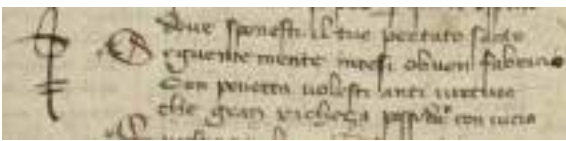 doue sponesti il tuo portato santo
Seguente mente intesi obuon fabricio
Con pouerta uolesti anti uirtute
che gran richeça posseder con uicio